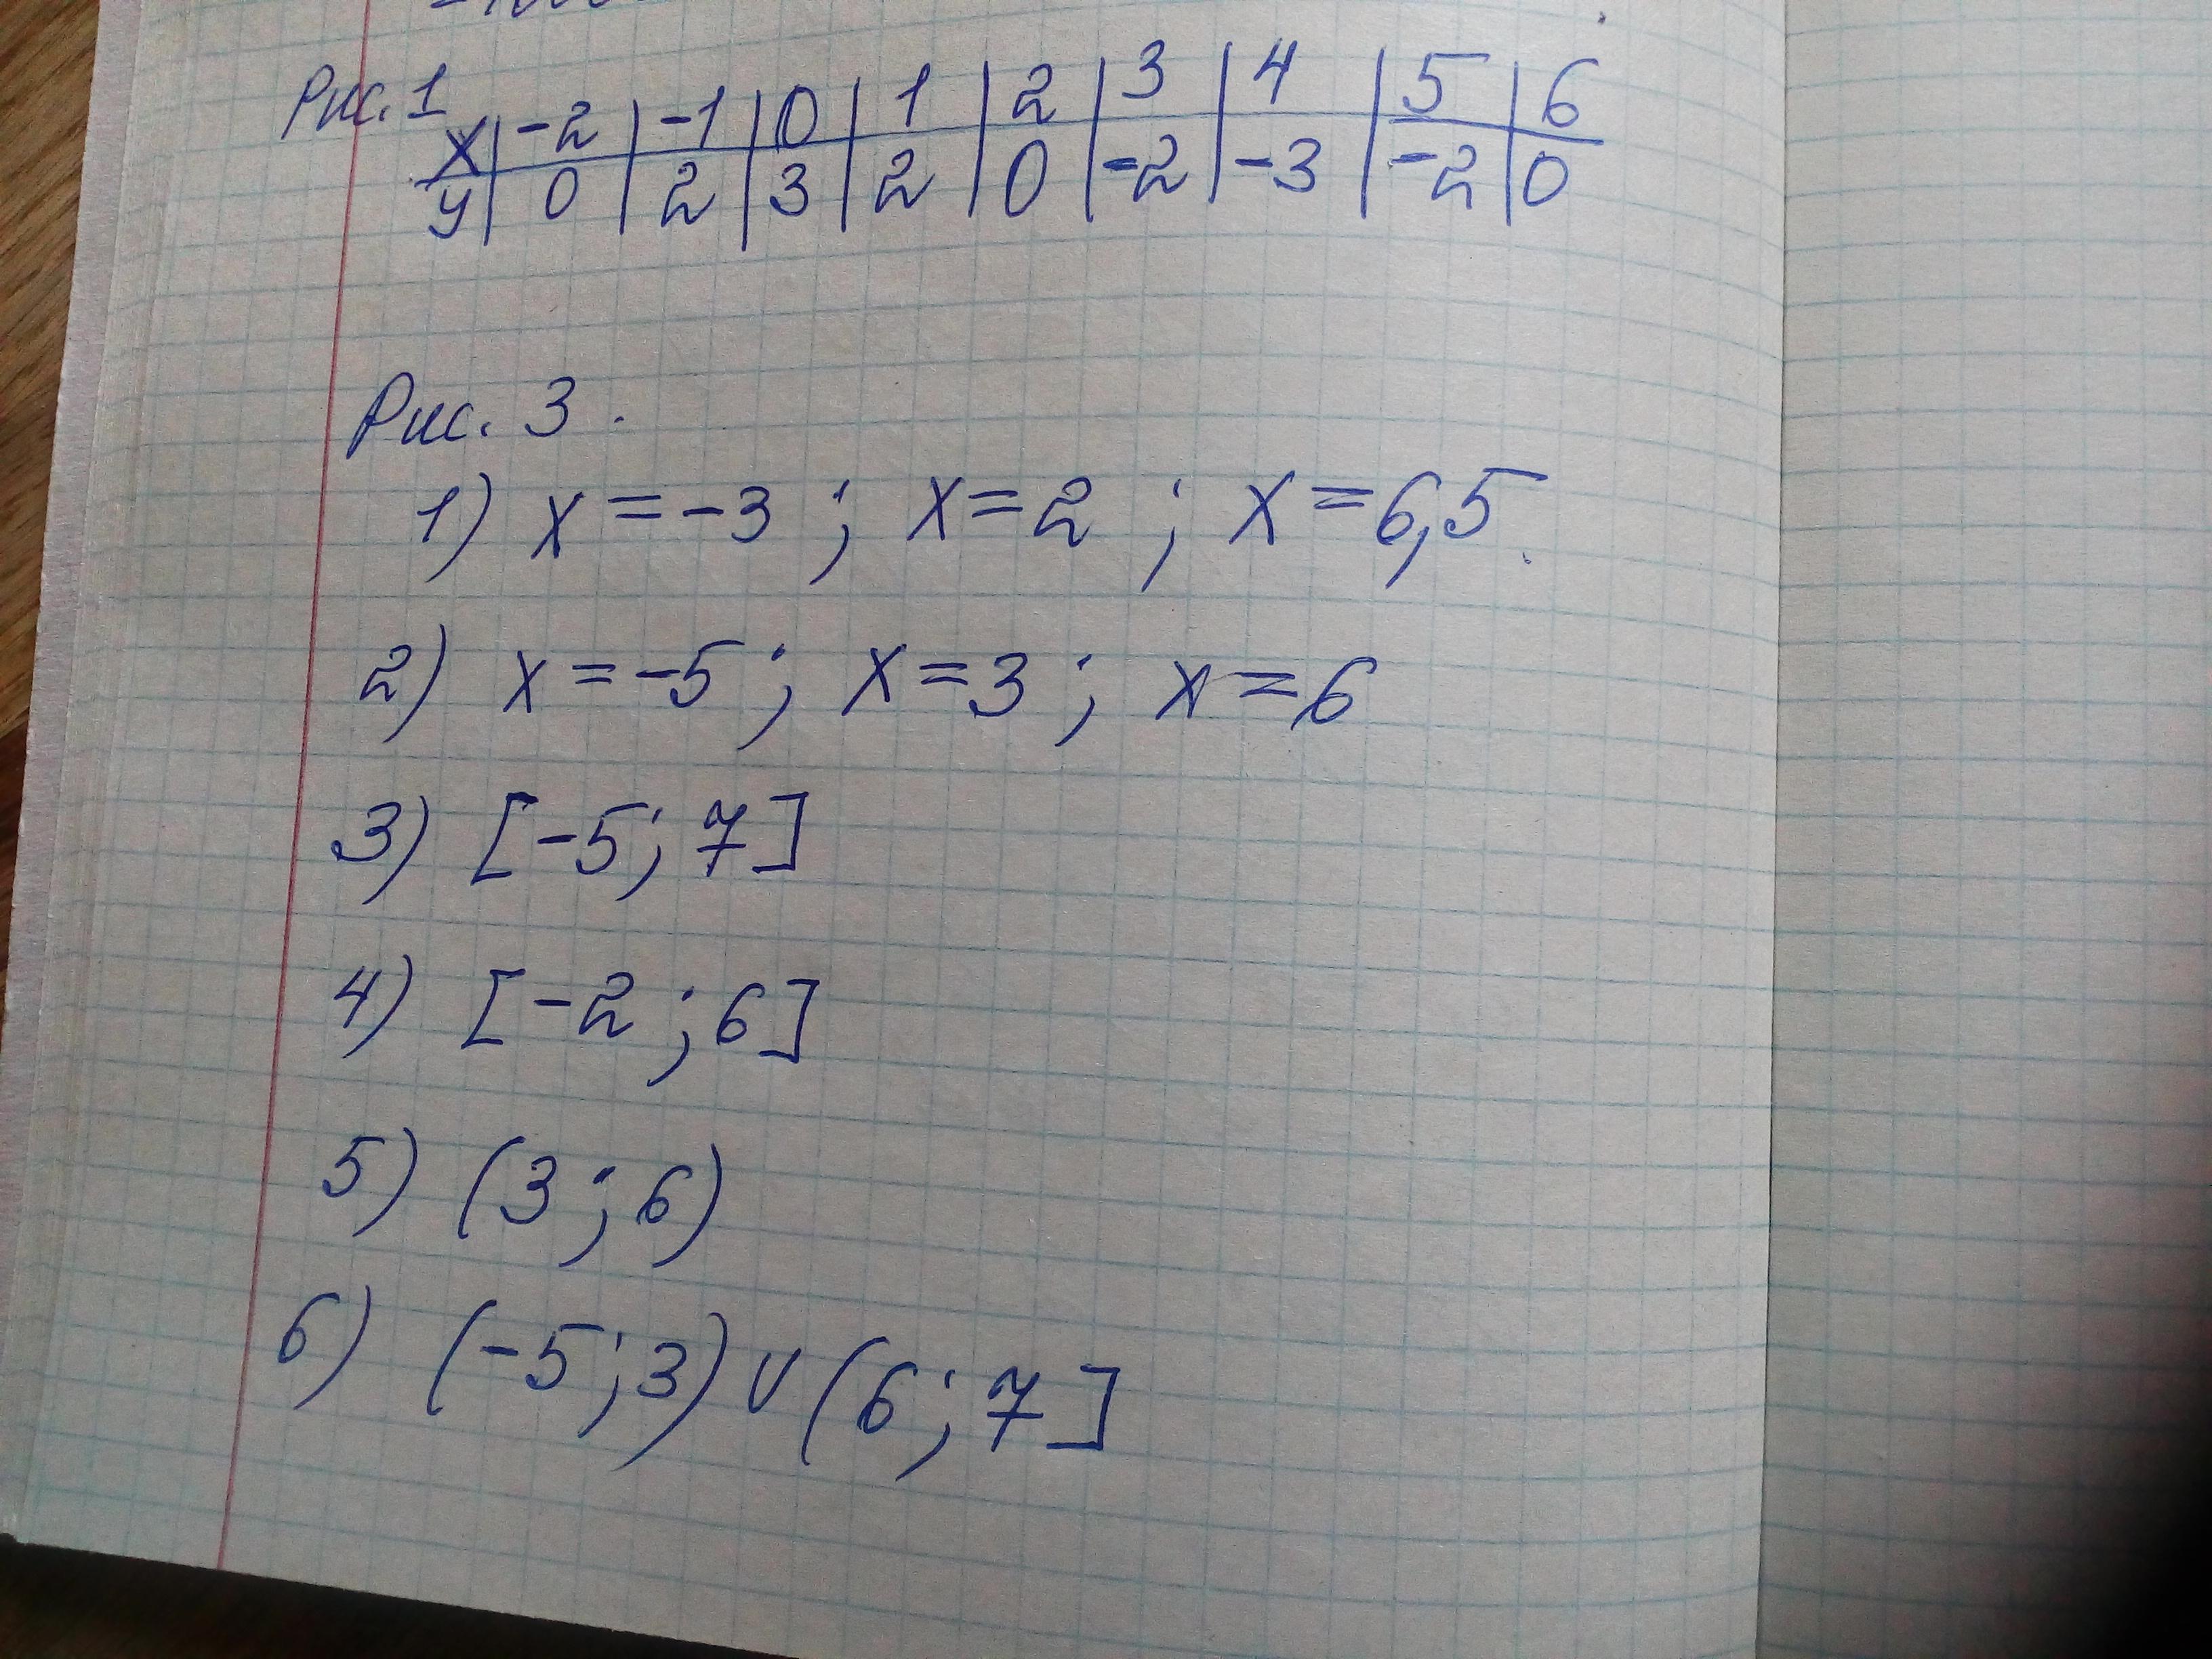 Рис. 1
x | -2 | -1 | 0 | 1 | 2 | 3 | 4 | 5 | 6
y | 0 | 2 | 3 | 2 | 0 | -2 | -3 | -2 | 0
Рис. 3.
1) x = -3 ; x = 2 ; x = 6,5.
2) x = -5 ; x = 3 ; x = 6
3) [-5; 7]
4) [-2 ; 6]
5) (3 ; 6)
6) (-5; 3) ∪ (6 ; 7]